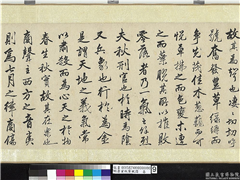 故其為聲也凄凄切切呼
號奮發豐草綠縟而
爭茂佳木葱蘢而可
悅草拂之而色變木遭
之而葉脫其所以摧敗
零落者乃一氣之餘烈
夫秋刑官也於時為陰
又兵象也於行為金
是謂天地之義氣常
以肅殺而為心天之於物
春生秋實故其在樂也
商聲主西方之音夷
則為七月之律商傷